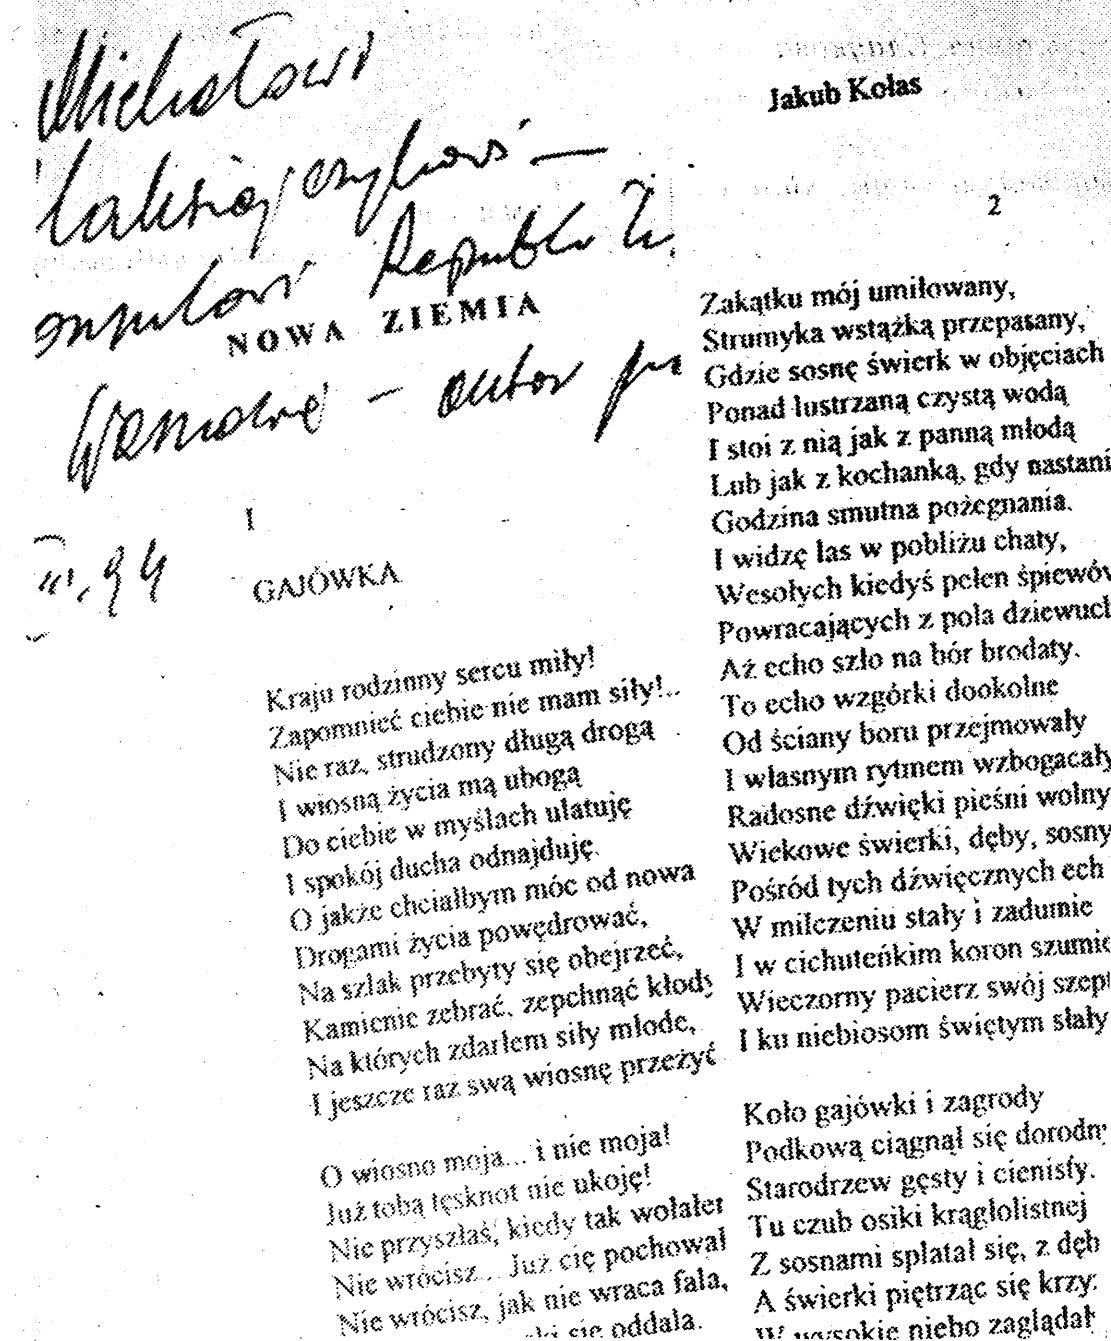 Michałowi
Republ.
NOWA ZIEMIA
autor
III. 94
I
GAJÓWKA
Kraju rodzinny sercu miły!
Zapomnieć ciebie nie mam siły!..
Nie raz, strudzony długą drogą
I wiosną życia mą ubogą
Do ciebie w myślach ulatuję
I spokój ducha odnajduję.
O jakże chciałbym móc od nowa
Drogami życia powędrować,
Na szlak przebyty się obejrzeć,
Kamienie zebrać, zepchnąć kłody
Na których zdarłem siły młode,
I jeszcze raz swą wiosnę przeżyć
O wiosno moja... i nie moja!
Już tobą tęsknot nie ukoję!
Nie przyszłaś, kiedy tak wołałem
Nie wrócisz... Już cię pochował
Nie wrócisz, jak nie wraca fala,
się oddala.
Jakub Kołas
2
Zakątku mój umiłowany,
Strumyka wstążką przepasany,
Gdzie sosnę świerk w objęciach
Ponad lustrzaną czystą wodą
I stoi z nią jak z panną młodą
Lub jak z kochanką, gdy nastani
Godzina smutna pożegnania.
I widzę las w pobliżu chaty,
Wesołych kiedyś pełen śpiewów
Powracających z pola dziewuch
Aż echo szło na bór brodaty.
To echo wzgórki dookolne
Od ściany boru przejmowały
I własnym rytmem wzbogacały
Radosne dźwięki pieśni wolny
Wiekowe świerki, dęby, sosny
Pośród tych dźwięcznych ech
W milczeniu stały i zadumie
I w cichuteńkim koron szumie
Wieczorny pacierz swój szept
I ku niebiosom świętym słały
Koło gajówki i zagrody
Podkową ciągnął się dorodny
Starodrzew gęsty i cienisty.
Tu czub osiki krągłolistnej
Z sosnami splatał się, z dęb
A świerki piętrząc się krzy
W wysokie niebo zaglądał